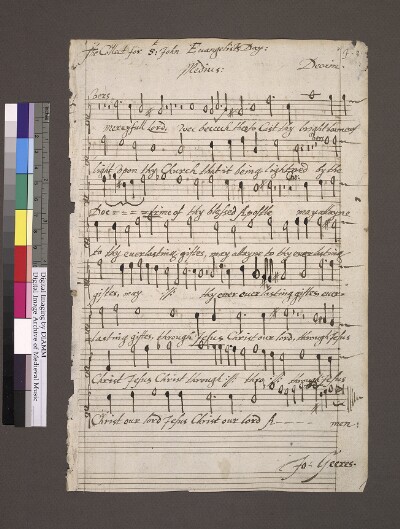 The Collect for St: John Evangelists Day:
Medius: Decani:
mercyfull Lord. wee beseech thee to Cast thy bright beames of
light upon thy Church that it being lightned by the
Doctrine of thy blessed Apostle may attayne
to thy everlasting giftes, may attayne to thy everlasting
giftes, may :||: thy ever everlasting giftes ever-
lasting giftes, through Jesus Christ our lord, through Jesus
Christ Jesus Christ through :||: thro :||: through Jesus
Christ our lord Jesus Christ our lord A - - - - men:
Jo: Geeres.
Digital Imaging by DIAMM
Digital Image Archive of Medieval Music